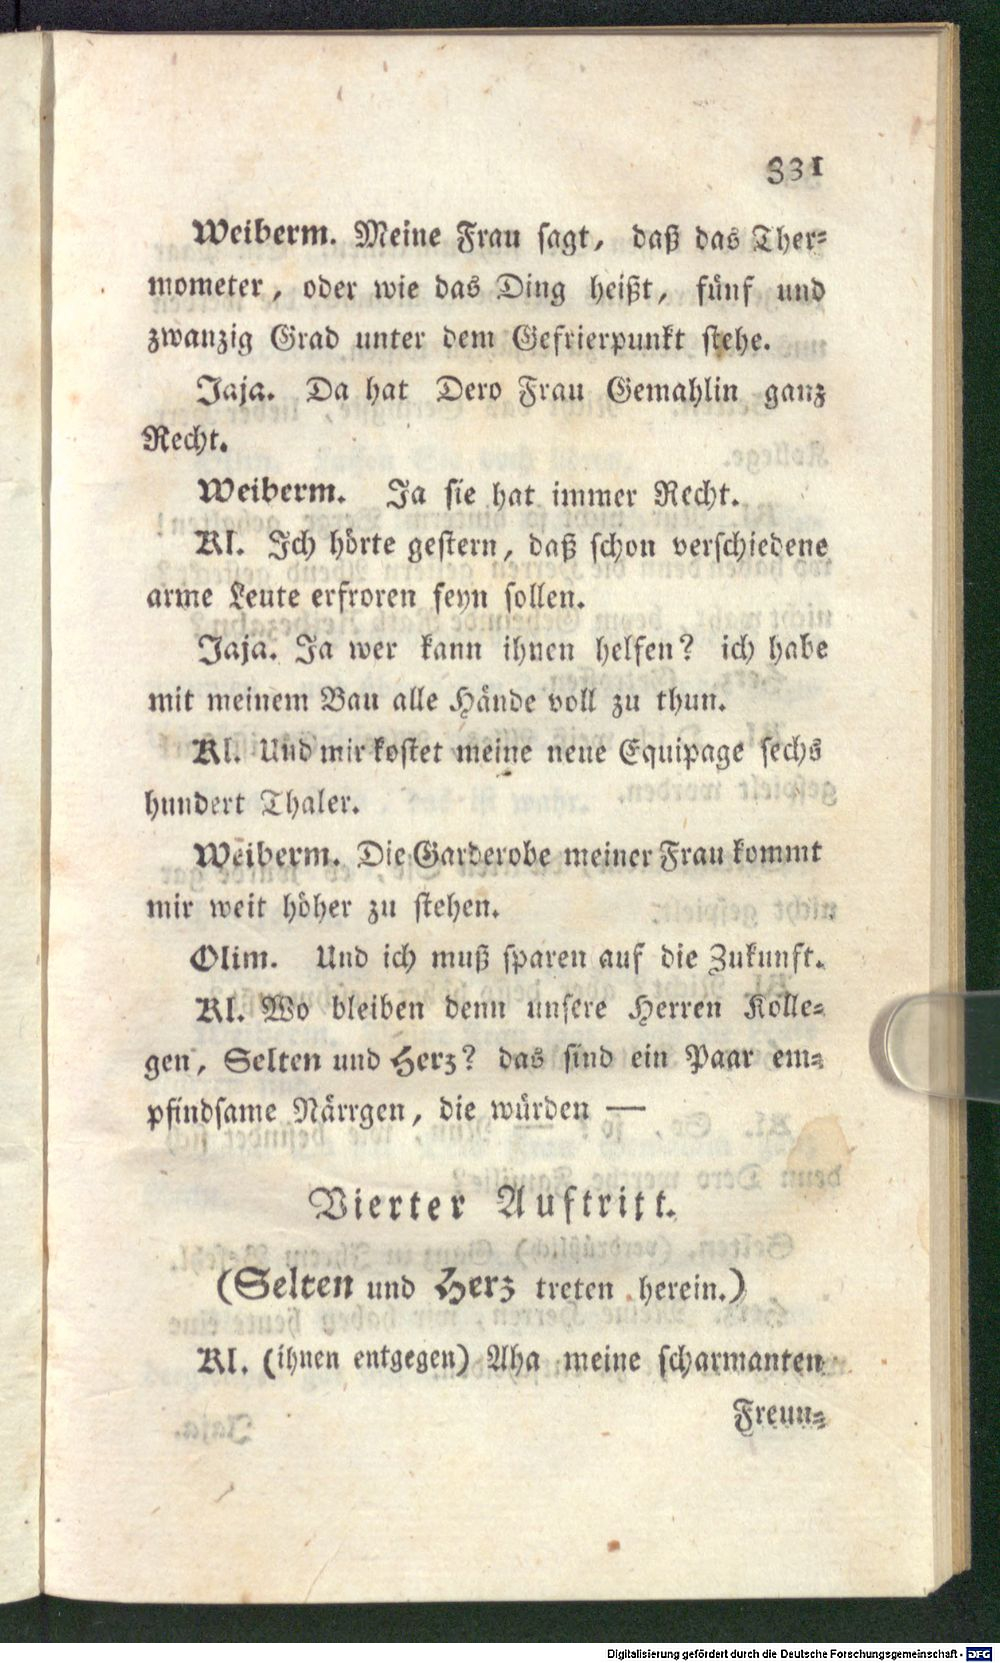 331
Weiberm. Meine Frau sagt, daß das Ther-
mometer, oder wie das Ding heißt, fünf und
zwanzig Grad unter dem Gefrierpunkt stehe.
Jaja. Da hat Dero Frau Gemahlin ganz
Recht.
Weiberm. Ja sie hat immer Recht.
Kl. Ich hörte gestern, daß schon verschiedene
arme Leute erfroren seyn sollen.
Jaja. Ja wer kann ihnen helfen? ich habe
mit meinem Bau alle Hände voll zu thun.
Kl. Und mir kostet meine neue Equipage sechs
hundert Thaler.
Weiberm. Die Garderobe meiner Frau kommt
mir weit höher zu stehen.
Olim. Und ich muß sparen auf die Zukunft.
Kl. Wo bleiben denn unsere Herren Kolle-
gen, Selten und Herz? das sind ein Paar em-
pfindsame Närrgen, die würden —
Vierter Auftritt.
(Selten und Herz treten herein.)
Kl. (ihnen entgegen) Aha meine scharmanten
Freun-
Digitalisierung gefördert durch die Deutsche Forschungsgemeinschaft - DFG